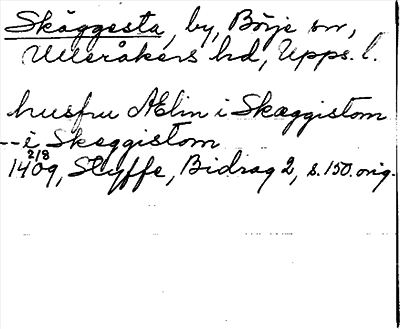 Skäggesta, by, Börje sn,
Ulleråkers hd, Upps. l.
husfru Ælin i Skæggistom
-- i Skeggistom
2/8
1409, Styffe, Bidrag 2, s. 150. orig.